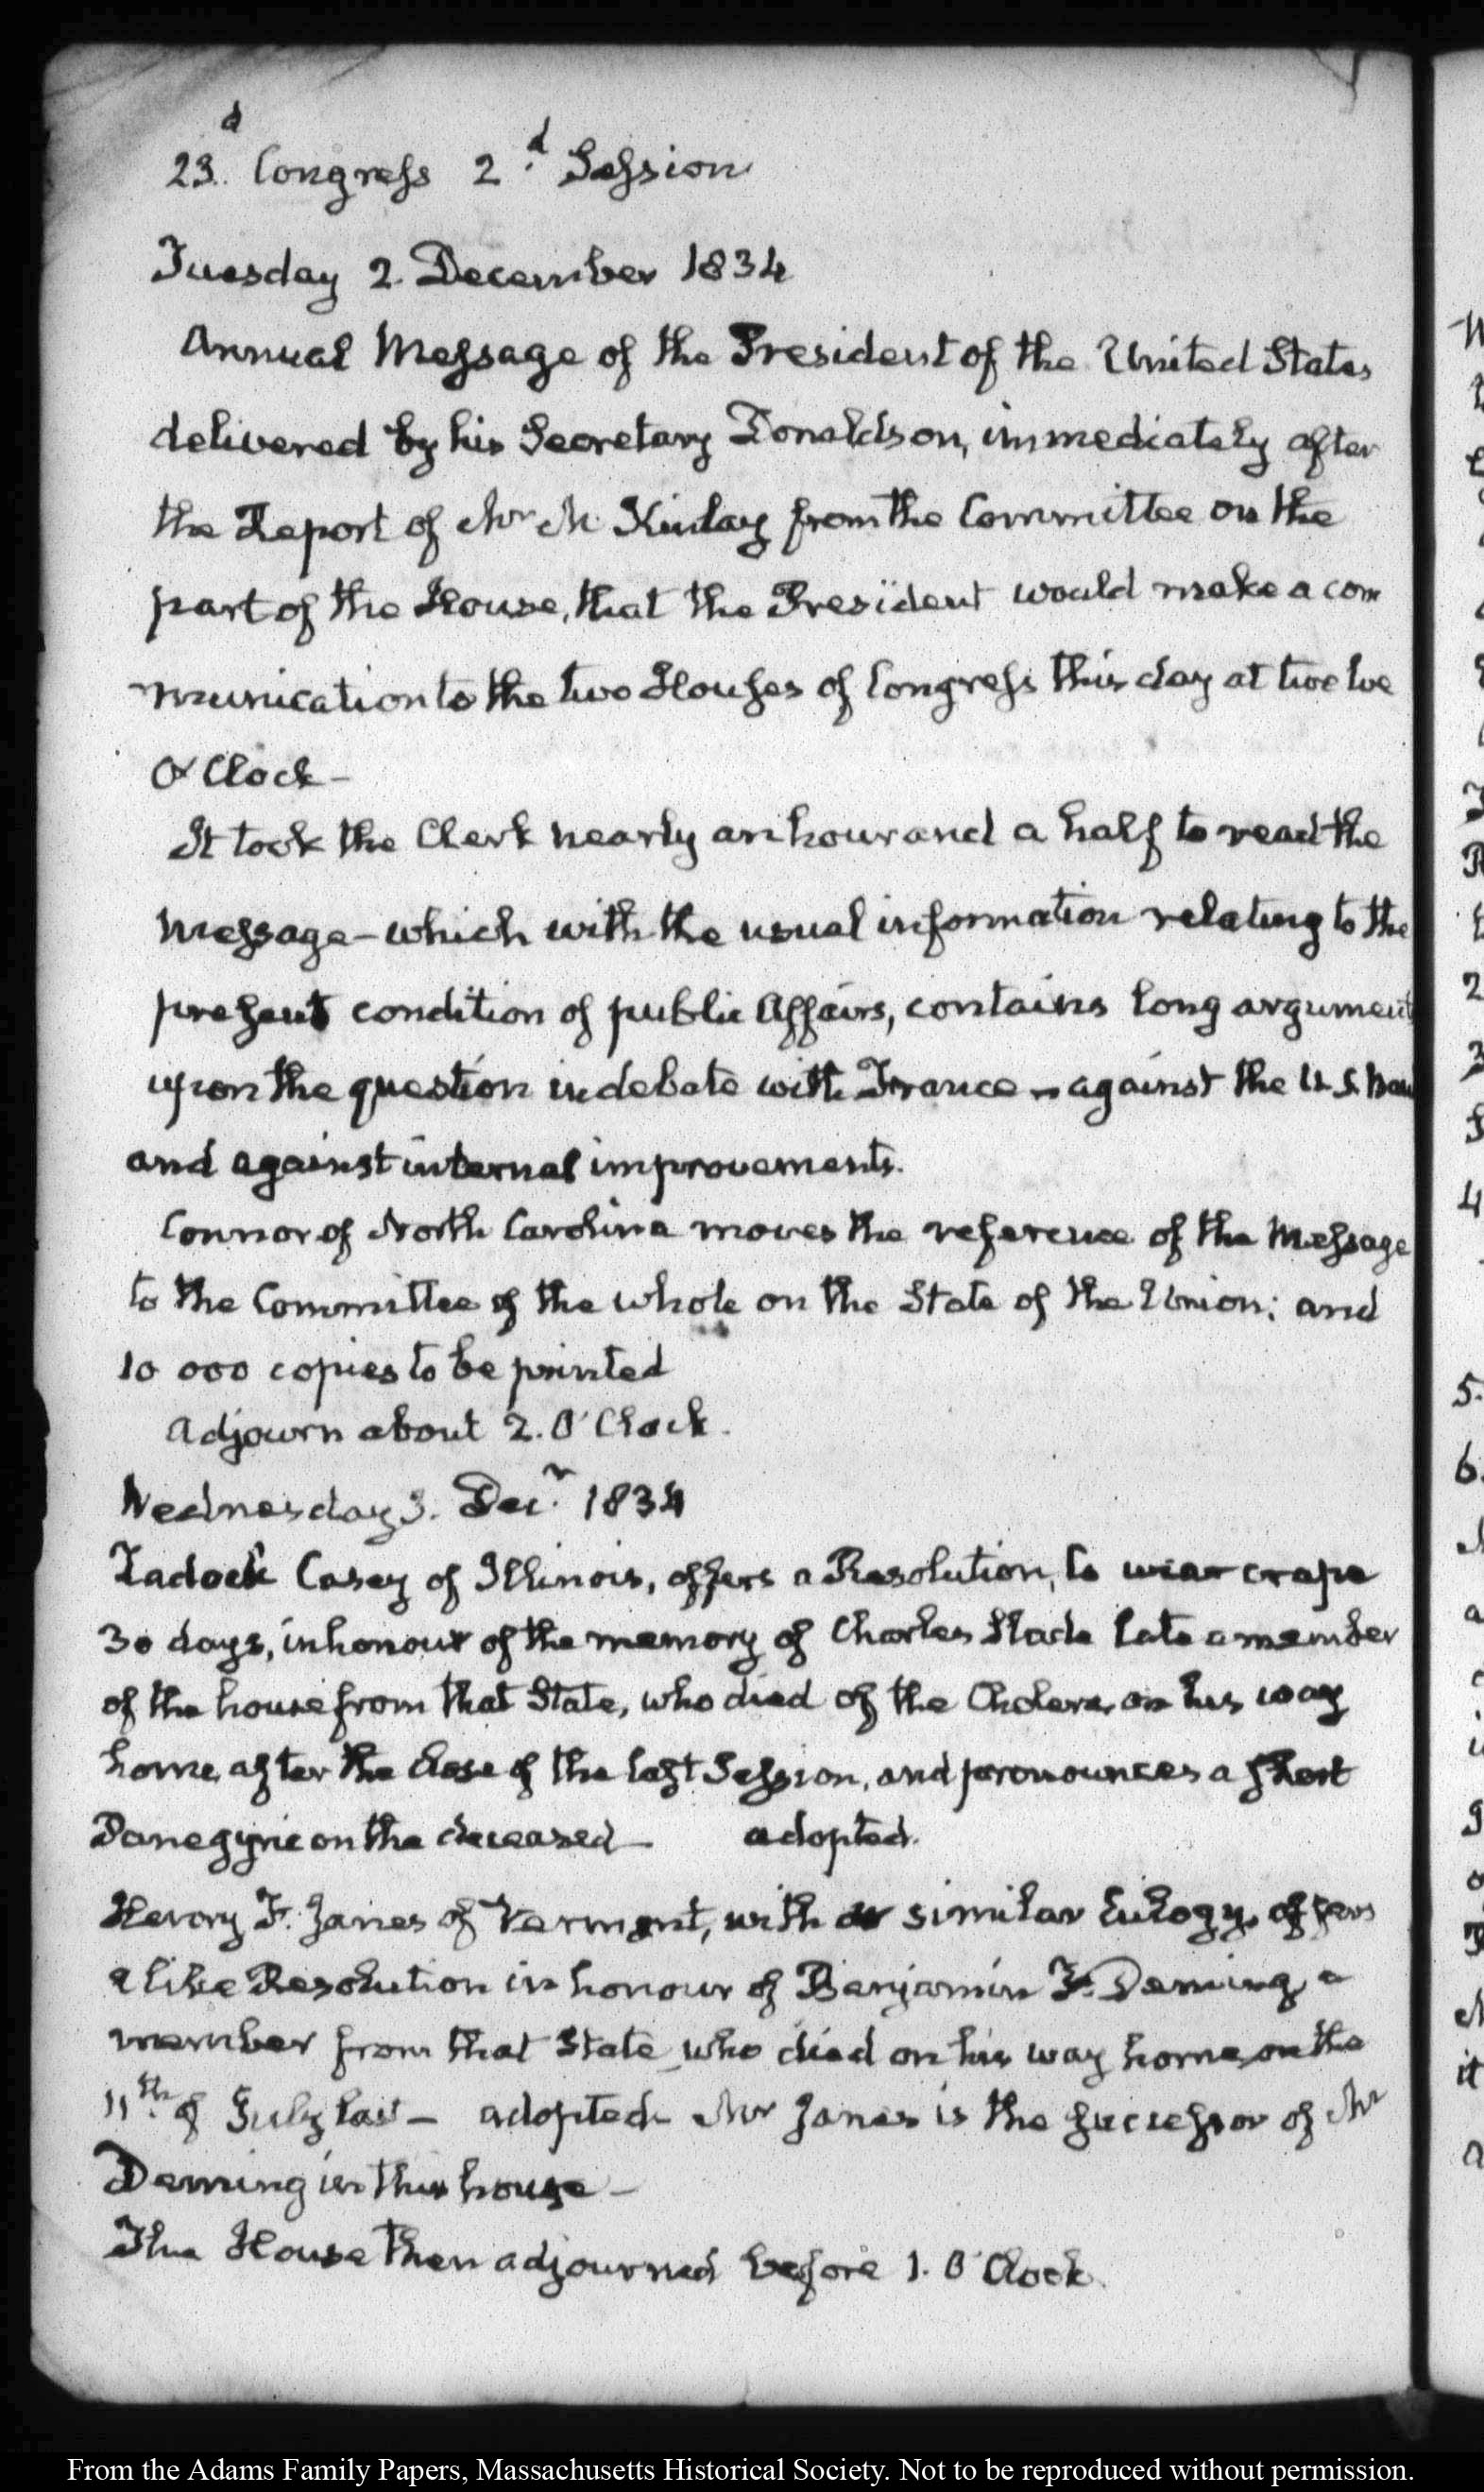 23.d Congress 2.d Session
Tuesday 2. December 1834
Annual Message of the President of the United States
delivered by his Secretary Donaldson, immediately after
the Report of Mr McKinlay from the Committee on the
part of the House, that the President would make a com
munication to the two Houses of Congress this day at twelve
O'Clock –
It took the Clerk nearly an hour and a half to read the
Message – which with the usual information relating to the
present condition of public Affairs, contains long argument
upon the question in debate with France – against the U.S. Ban
and against internal improvements.
Connor of North Carolina moves the reference of the Message
to the Committee of the whole on the State of the Union; and
10 000 copies to be printed
Adjourn about 2. O'Clock.
Wednesday 3. Decr. 1834
Zadock Casey of Illinois, offers a Resolution, to wear crape
30 days, in honour of the memory of Charles Slade late a member
of the house from that State, who died of the Cholera, on his way
home, after the close of the last Session, and pronounces a short
Panegyric on the deceased – adopted.
Henry F. Janes of Vermont, with a similar Eulogy, offers
a like Resolution in honour of Benjamin F. Deming, a
member from that State who died on his way home, on the
11th. of July last – adopted – Mr Janes is the successor of Mr
Deming in this house –
The House then adjourned before 1. O'Clock.
From the Adams Family Papers, Massachusetts Historical Society. Not to be reproduced without permission.